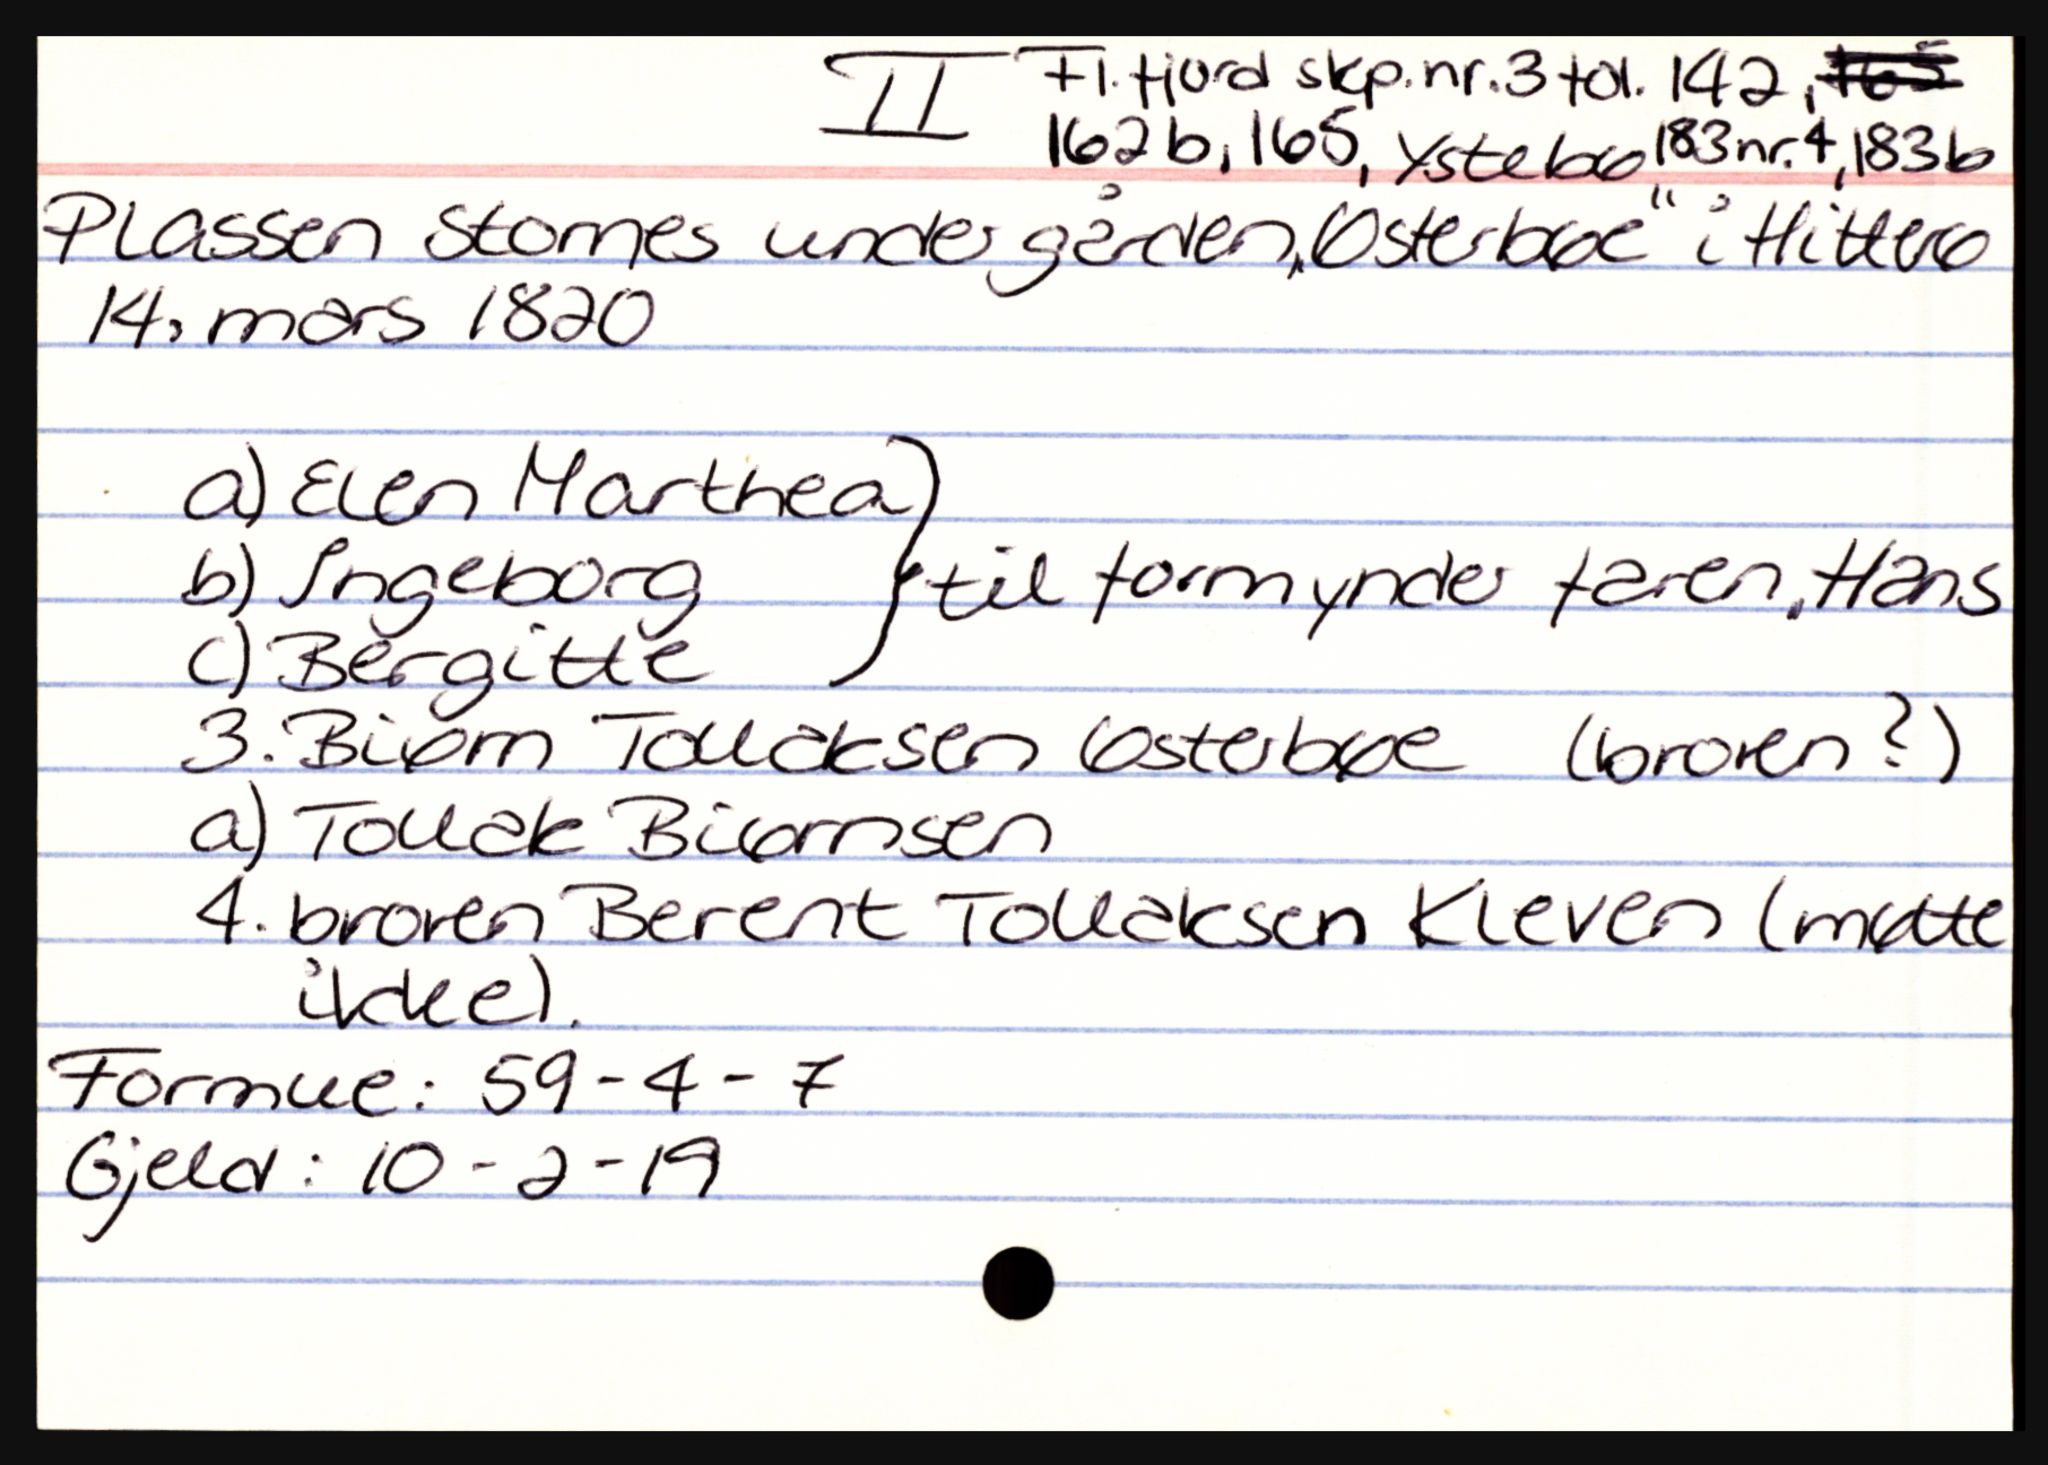 II Fl. fjord skp. nr. 3 fol. 142,
162b, 165, Ystebø 183 nr. 4, 183b
Plassen Stornes under gården „Østerbøe“ i Hitterø
14. mars 1820
a) Elen Marthea
b) Ingeborg } til formynder faren, Hans
c) Bergitte
3. Biørn Tollaksen Østerbøe (broren?)
a) Tollak Biørnsen
4. broren Berent Tollaksen Kleven (møtte
ikke).
Formue: 59-4-7
Gjeld: 10-2-19